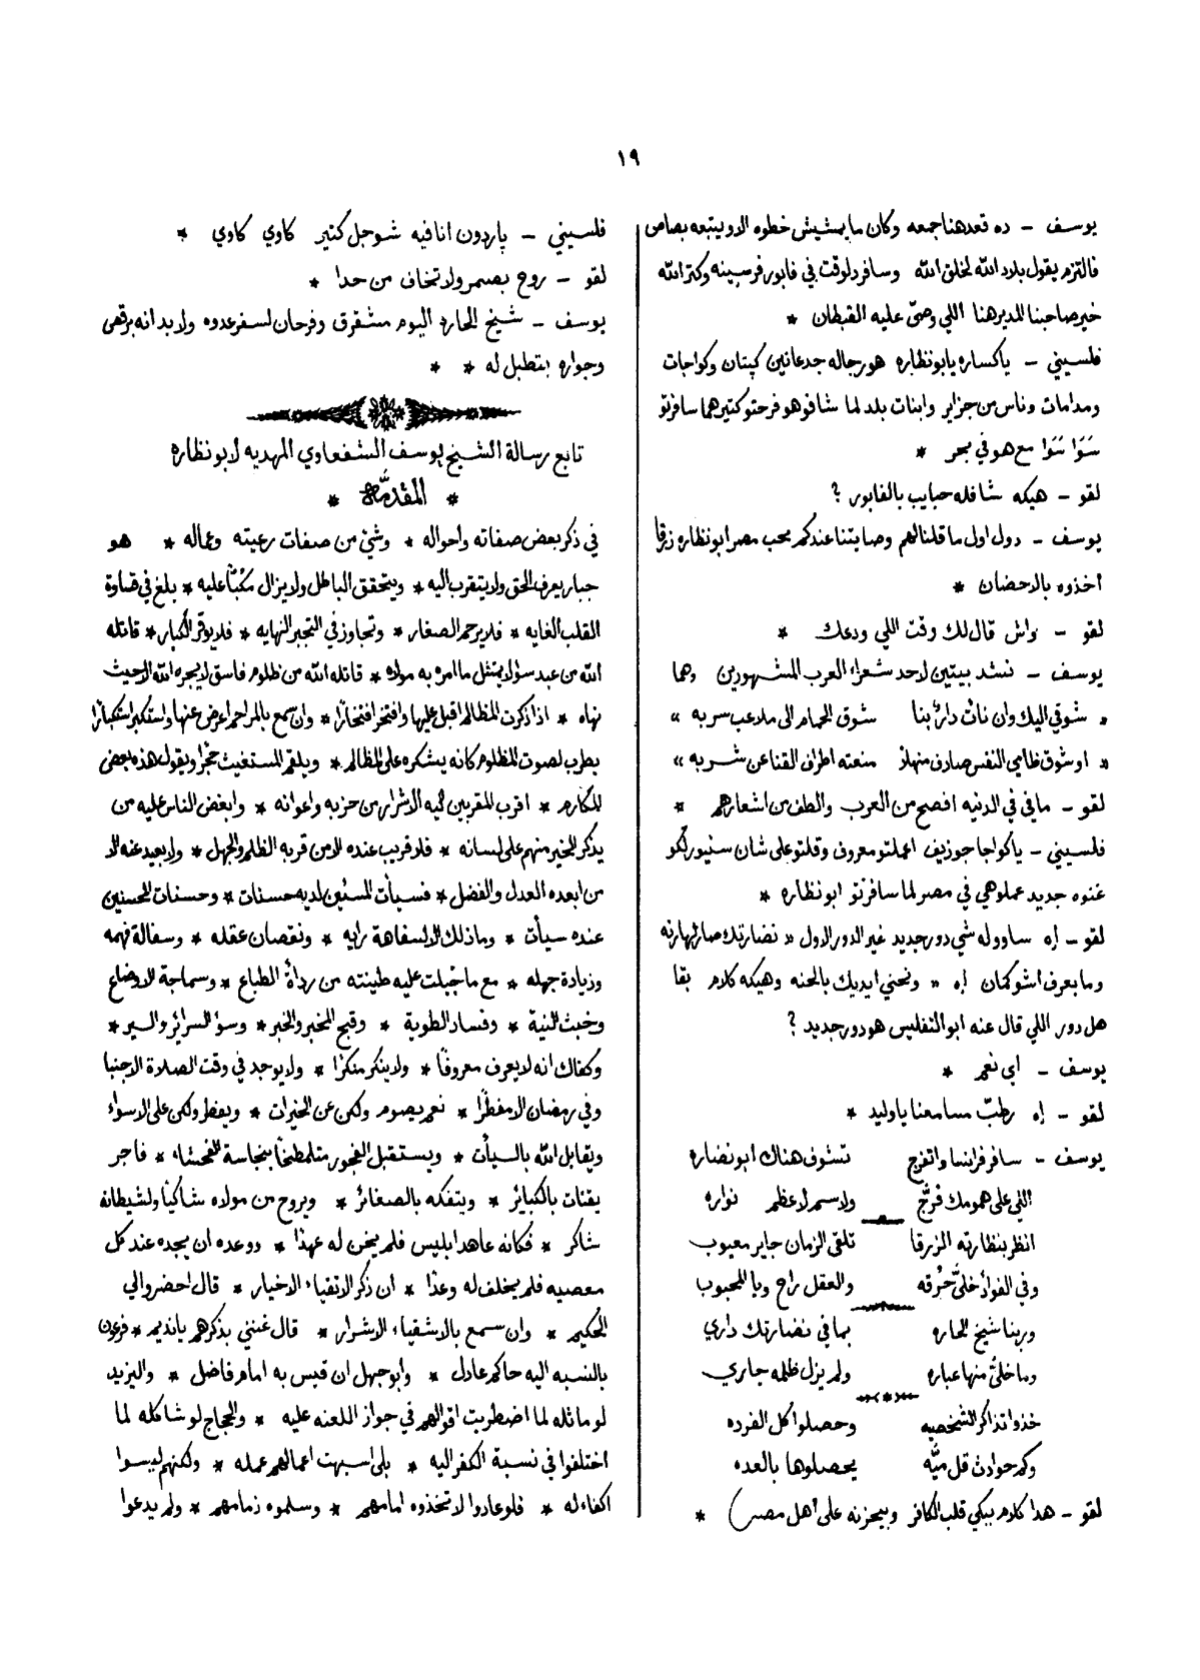 ١٩
يوسف - ده قعد هنا جمعه وكان ما يمشيش خطوه الا ويتبعه بصاص
فالتزم يقول بلاد الله لخلق الله وسافر دلوقت في فابور فرسينه وكتر الله
خير صاحبنا المدير هنا اللي وصى عليه القبطان *
فلسيني - ياكساره يابونظاره هو رجاله جدعانين كپتان وكواجات
ومدامات وناس من جزاير وابنات بلد لما شافوهو فرحتو كتير هما سافرتو
سَوَا سَوَا مع هو في بحر *
لقو - هيكه شافله حبايب بالفابور ؟
يوسف - دول اول ما قلنالهم وصايتنا عندكم محب مصر ابونظاره زرقا
اخذوه بالاحضان *
لقو - واش قال لك وقت اللي ودعك *
يوسف - نشد بيتين لاحد شعراء العرب المشهورين وهما
« شوقي اليك وان نات دار بنا شوق الحمام الى ملاعب سربه »
« او شوق ظامي النفس صادف منهلا منعته اطراف القنا عن شربه »
لقو - ما في في الدنيه افصح من العرب والطف من اشعارهم *
فلسيني - ياكواجا جوزيف اعملتو معروف وقلتو على شان سنيور لكو
غنوه جديد عملو هي في مصر لما سافرتو ابونظاره *
لقو - اه ساووله شي دور جديد غير الدور الاول « نضارتك صار لها رنه
وما بعرف اشو كمان اه « ونحني ايديك بالحنه وهيكه كلام بقا
هل دور اللي قال عنه ابو النفليس هو دور جديد ؟
يوسف - اي نعم *
لقو - اه رطبّ مسامعنا ياوليد *
يوسف - سافر فرانسا واتفرج تشوف هناك ابونضاره
اللي على همومك فرّج ولا سم لاعظم نواره
انظر بنظارته الزرقا تلقى الزمان جاير معيوب
وفي الفواد خلّى حُرقه والعقل راح ويا المحبوب
وربنا شيخ الحاره بما في نضارتك داري
وما خلّى منها عباره ولم يزل ظلمه جاري
خذوا تذاكر الشخصيه وحصلوا كل الفرده
وكم حوادث قل ميّه يحصلوها بالعده
لقو - هدا كلام يبكي قلب الكافر ويحزنه على اهل مصر ) *
فلسيني - پاردون انا فيه شوجل كتير كاوي كاوي *
لقو - روح بصمر ولا تخاف من حدا *
يوسف - شيخ الحاره اليوم مشقرق وفرحان لسفر عدوه ولا بد انه برقص
وجواره بتطبل له * *
تابع رسالة الشيخ يوسف الشفعاوي المهديه لابونظاره
* المقدمَّه *
في ذكر بعض صفاته واحواله * وشئ من صفات رعيته وعماله * هو
جبار يعرف الحق ولا يتقرب اليه * ويتحقق الباطل ولا يزال مكبّاً عليه * بلغ في قساوة
القلب الغايه * فلا يرحم الصغار * وتجاوز في التجبر النهايه * فلا يوقر الكبار * قاتله
الله من عبد سؤ لا يمتثل ما امره به مولاه * قاتله الله من ظلوم فاسق لا يجره الله الا حيث
نهاه * اذا ذكرت المظالم اقبل عليها وافتخر افتخارًا * وان سمع بالمراحم اعرض عنها واستكبر استكبارًا
يطرب لصوت المظلوم كانه يشكره على المظالم * ويلقم المستغيث حجرًا ويقول هذه بعض
المكارم * اقرب المقربين اليه الاشرار من حزبه واعوانه * وابغض الناس عليه من
يذكر الخير منهم على لسانه * فلا قريب عنده الا من قربه الظلم والجهل * ولا بعيد عنه الا
من ابعده العدل والفضل * فسيأت المسئين لديه حسنات * وحسنات المحسنين
عنده سيأت * وما ذلك الا لسفاهة رايه * ونقصان عقله * وسفالة فهمه
وزيادة جهله * مع ما جبلت عليه طينته من ردأة الطباع * وسماجة الاوضاع
وخبث النية * وفساد الطوية * وقبح المخبر والخبر * وسؤ السرائر والسير *
وكفاك انه لا يعرف معروفًا * ولا ينكر منكرًا * ولا يوجد في وقت الصلاة الا جنبا
وفي رمضان الا مفطرًا * نعم يصوم ولكن عن الخيرات * ويفطر ولكن على الاسواء
ويقابل الله بالسيأت * ويستقبل الفجور متلطخًا بنجاسة الفحشاء * فاجر
يقتات بالكبائر * ويتفكه بالصغائر * ويروح من مولاه شاكيًا ولشيطانه
شاكر * فكانه عاهد ابليس فلم يخن له عهدًا * ووعده ان يجده عند كل
معصيه فلم يخلف له وعدًا * ان ذكر الاتقياء الاخيار * قال احضروا لي
الحكيم * وان سمع بالاشقياء الاشرار * قال غنني بذكرهم يا نديم * فرعون
بالنسبه اليه حاكم عادل * وابو جهل ان قيس به امام فاضل * واليزيد
لو ماثله لما اضطربت اقوالهم في جواز اللعنه عليه * والحجاج لو شاكله لما
اختلفوا في نسبة الكفر اليه * بلى اسبهت اعمالهم عمله * ولكنهم ليسوا
اكفاء له * فلو عادوا لاتخذوه امامهم * وسلموه زمامهم * ولم يدعوا